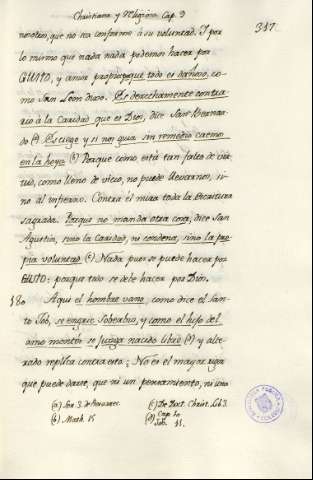 Christiana y Religiosa. Cap. 9
317
nosotros, que no sea conforme à su voluntad. I por
lo mismo que nada nada podemos hacer por
GUSTO, y amor propio; que todo es dañoso, co-
mo San Leon dixo. Es derechamente contra-
rio à la Caridad que es Dios, dice San Bernar-
do (a) Es ciego y si nos guia sin remedio caemos
en la hoya (b) Porque como està tan falto de vir-
tud, como lleno de vicio, no puede llevarnos, si-
no al infierno. Contra èl mira toda la Escritura
sagrada. Porque no manda otra cosa, dice San
Agustin, sino la Caridad, ni condena, sino la pro-
pia voluntad (c) Nada pues se puede hacer por
GUSTO: porque todo se debe hacer por Dios.
180 Aqui el hombre vano, como dice el San-
to Job, se engrie Soberbio, y como el hijo del
asno montès se juzga nacido libre (d) y alte-
rado replica contra esto; No es el mayor rigor
que puede darse, que ni un pensamiento, ni una
(a) Ser. 3. de Resurrec.
(b) Math. 15
(c) De Doct. Christ. Lib. 3.
(d) Cap. 10
Job. 11.